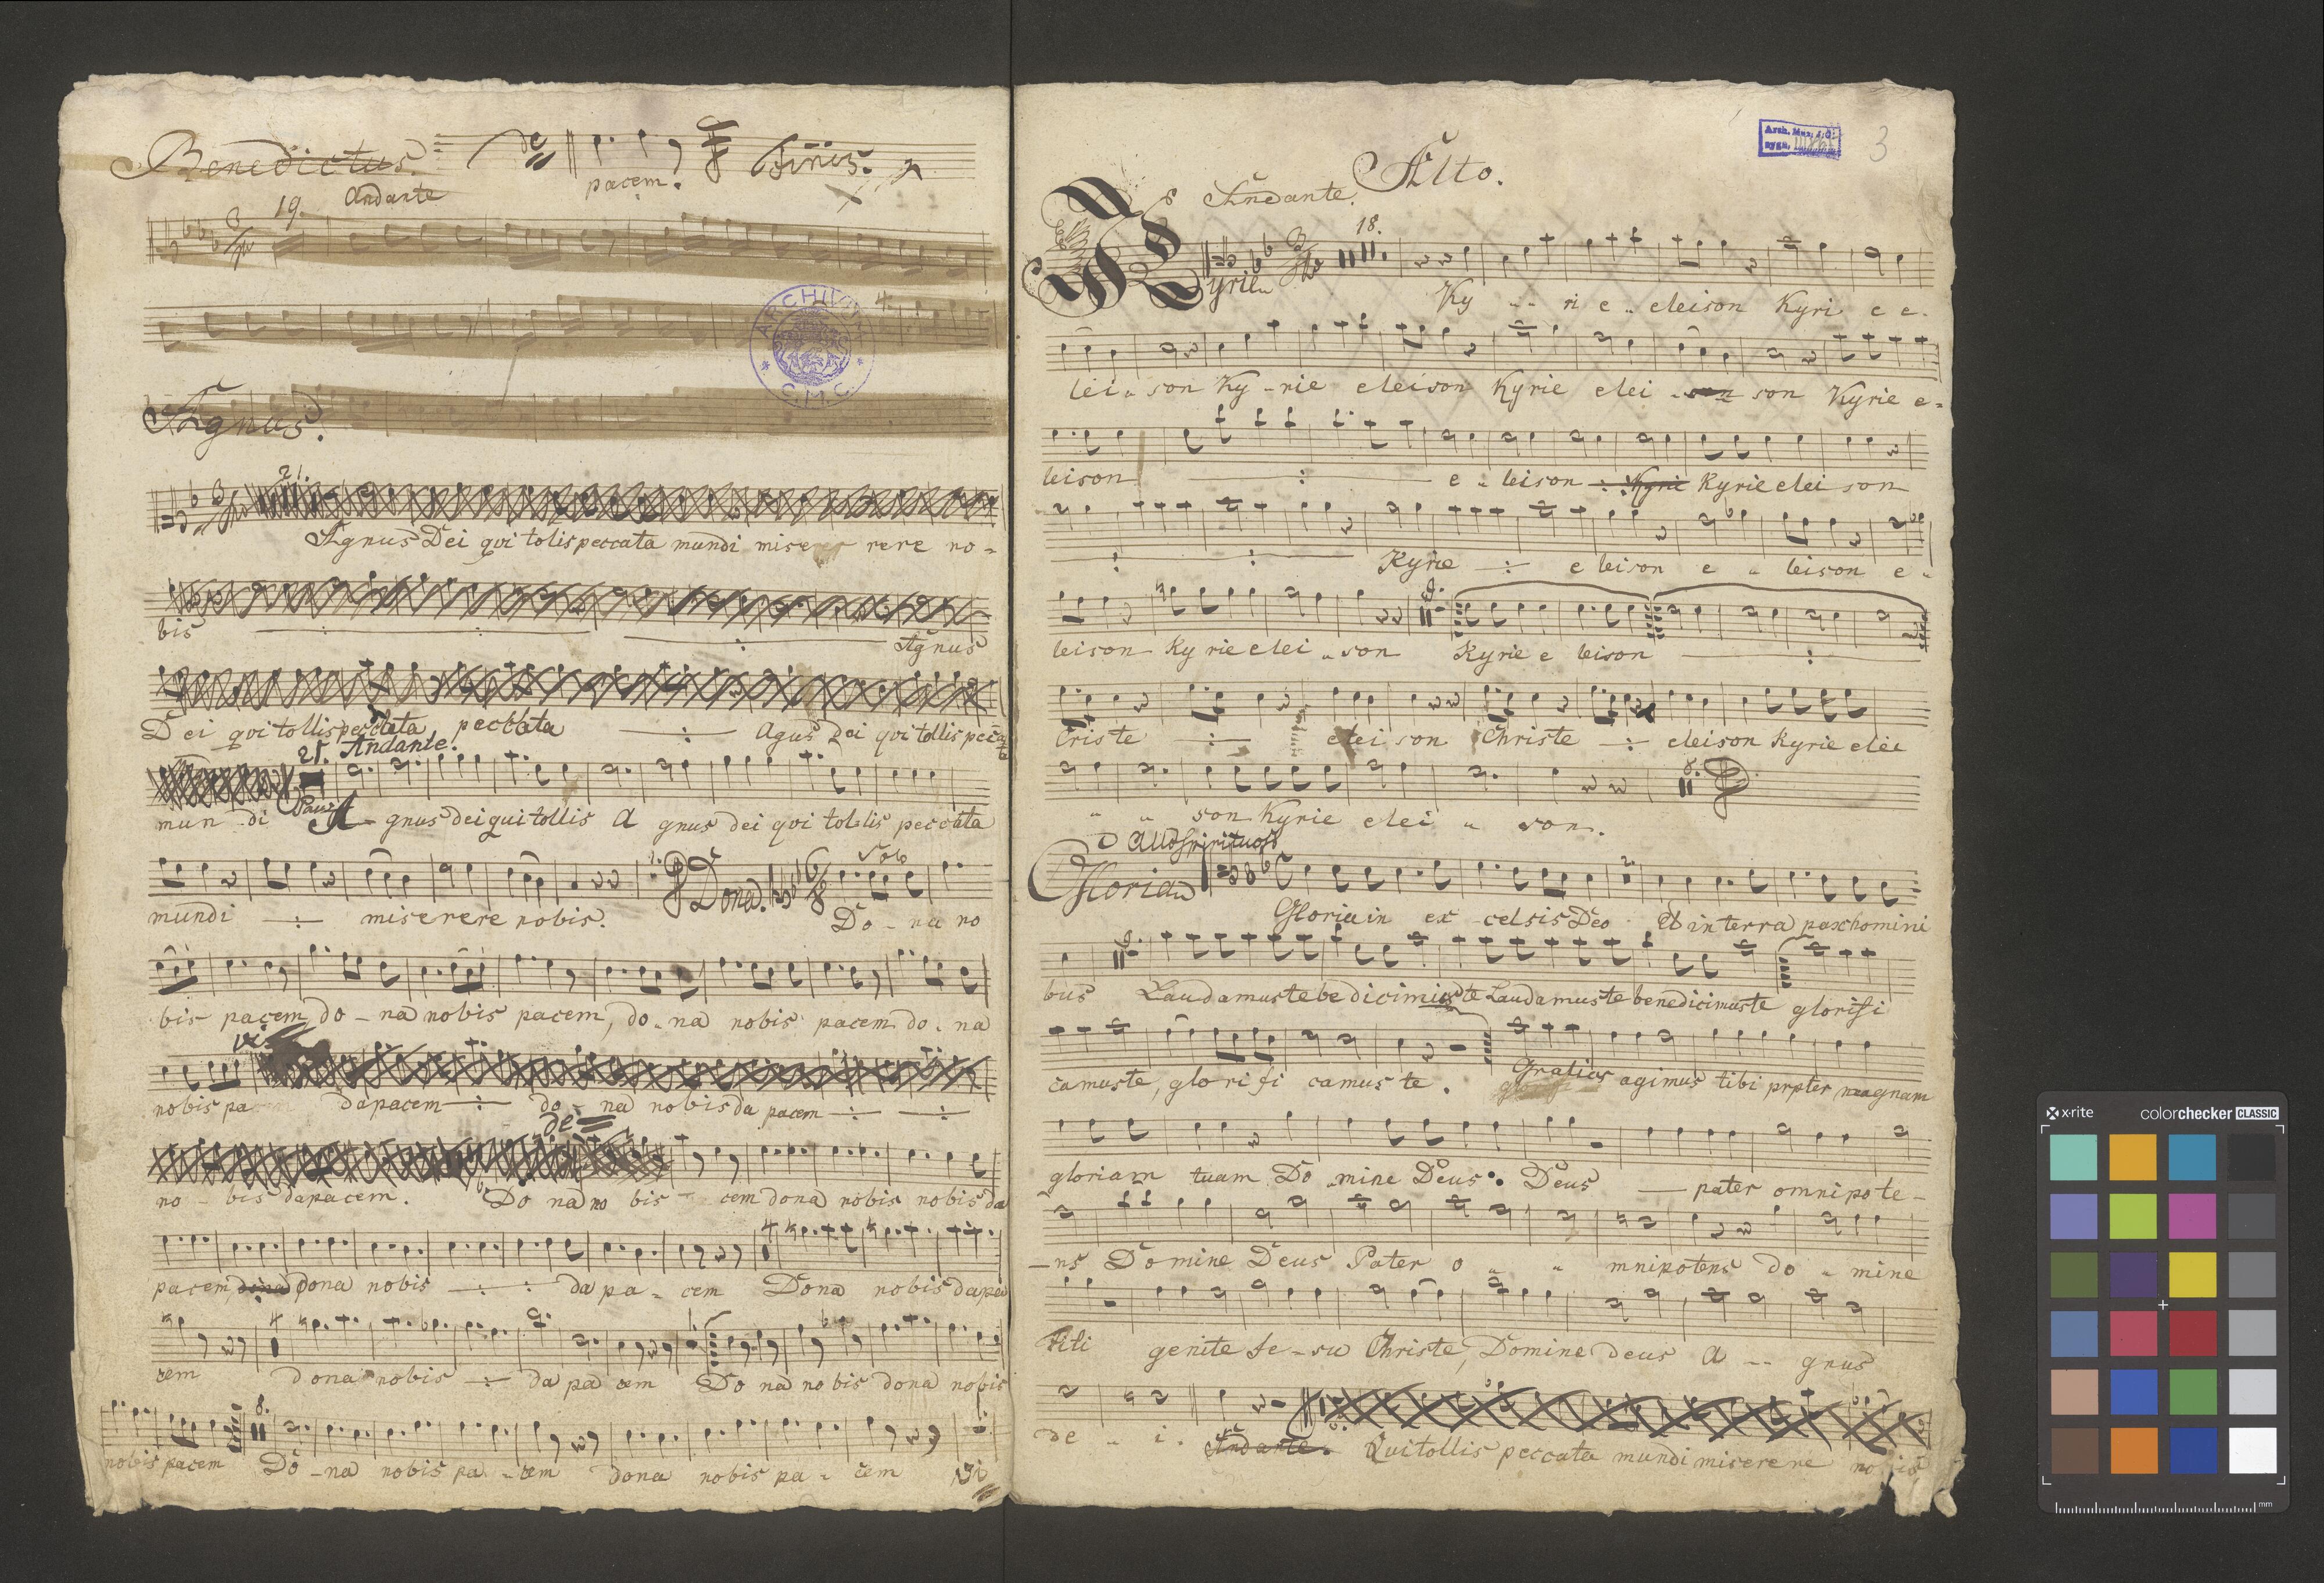 Benedictus.
pacem.
Finis.
19.
Andante
ARCHIVUM
C.M.C.
Agnus.
21.
Agnus Dei qvi tolis peccata mundi mise rere no-
bis Agnus
Dei qvi tollis peccata Agus Dei qvi tollis pecca
21. Andante.
mun di A-gnus dei qui tollis A gnus dei qvi tollis peccata
Solo
Dona.
mundi miserere nobis. Do-na no
bis pacem, do-na nobis pacem, do-na nobis pacem do-na
vi
nobis pa da pacem do-na nobis da pacem
de
no-bis da pacem. Do na no bis cem dona nobis nobis da
4
pacem, dona dona nobis da pa-cem Dona nobis da pa
4
cem dona nobis da pa cem Do na no bis dona nobis
8.
nobis pacem Do-na nobis pa-cem dona nobis pa-cem
Arch. Muz.
sygn.
3
Alto.
Andante.
18.
Kyrie
Ky - - ri e - eleison Kyri e e-
lei-son Ky-rie eleison Kyrie elei-son son Kyrie e-
leison e-leison Kyrie Kyrie elei son
Kyrie eleison e - leison e-
8.
leison Kyrie elei-son Kyrie e leison
Criste elei son Christe eleison Kyrie elei
8.
- - son Kyrie elei - son.
Allo Spirituoso
Gloria
2.
Gloria in ex-celsis Deo Et in terra pax homini
bus Laudamus te be dicimus te Laudamus te benedicimus te glorifi
camus te, glo ri fi camus te. Gratias agimus tibi prpter magnam
gloriam tuam Do mine Deus. Deus pater omnipote-
-ns Domine Deus Pater o - - mnipotens do - mine
Fili genite Je-su Christe, Domine deus A -- gnus
de - i. Andante. Qui tollis peccata mundi miserere
x-rite
colorchecker CLASSIC
mm